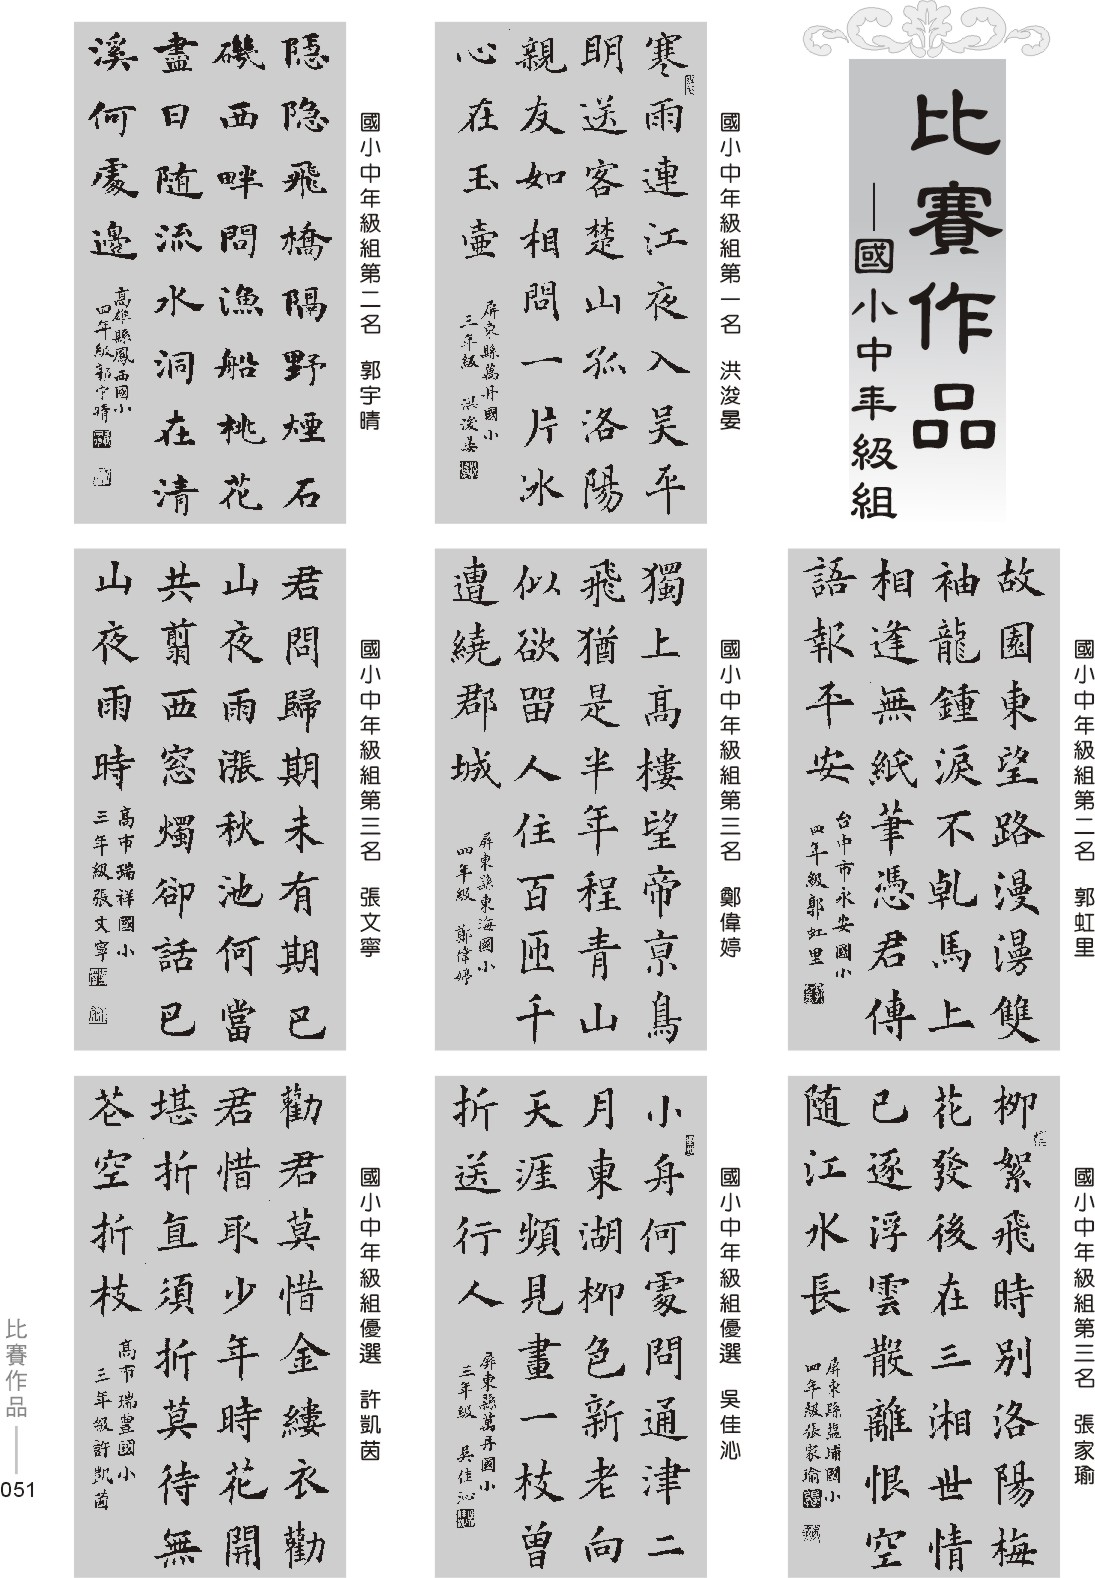 比賽作品
—國小中年級組
國小中年級組第一名 洪浚晏
寒雨連江夜入吴平
明送客楚山孤洛陽
親友如相問一片冰
心在玉壷
屏東縣萬丹國小
三年級 洪浚晏
國小中年級組第二名 郭宇晴
隱隱飛橋隔野煙石
磯西畔問漁船桃花
盡日随流水洞在清
溪何處邊
高雄縣鳳西國小
四年級郭宇晴
國小中年級組第二名 郭虹里
故園東望路漫漫雙
袖龍鍾淚不乹馬上
相逢無紙筆憑君傳
語報平安
台中市永安國小
四年級郭虹里
國小中年級組第三名 鄭偉婷
獨上高樓望帝京鳥
飛猶是半年程青山
似欲留人住百匝千
遭繞郡城
屏東縣東海國小
四年級 鄭偉婷
國小中年級組第三名 張文寧
君問歸期未有期巴
山夜雨漲秋池何當
共翦西窓燭卻話巴
山夜雨時
高市瑞祥國小
三年級張文寧
國小中年級組第三名 張家瑜
柳絮飛時別洛陽梅
花發後在三湘世情
已逐浮雲散離恨空
随江水長
屏東縣鹽埔國小
四年級張家瑜
國小中年級組優選 吳佳沁
小舟何處問通津二
月東湖柳色新老向
天涯頻見畫一枝曾
折送行人
屏東縣萬丹國小
三年級 吳佳沁
國小中年級組優選 許凱茵
勸君莫惜金縷衣勸
君惜取少年時花開
堪折直須折莫待無
花空折枝
高市瑞豐國小
三年級許凱茵
比賽作品
051